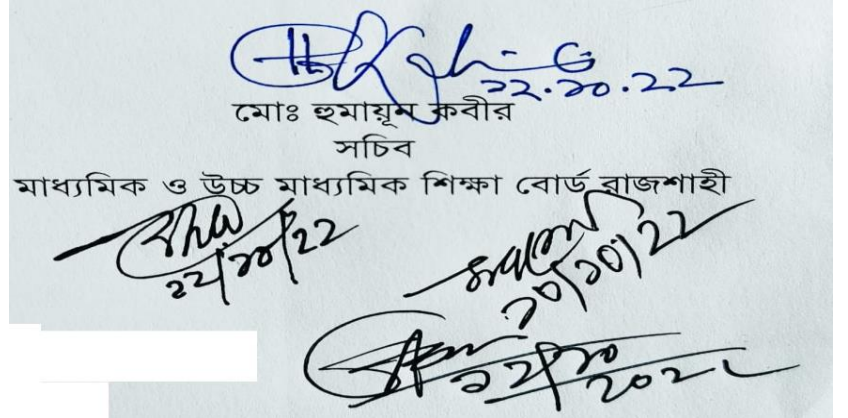 ১২.১০.২২
মোঃ হুমায়ূন কবীর
সচিব
মাধ্যমিক ও উচ্চ মাধ্যমিক শিক্ষা বোর্ড রাজশাহী
১২/১০/২২
১০/১০/২২
১২/১০
২০২২